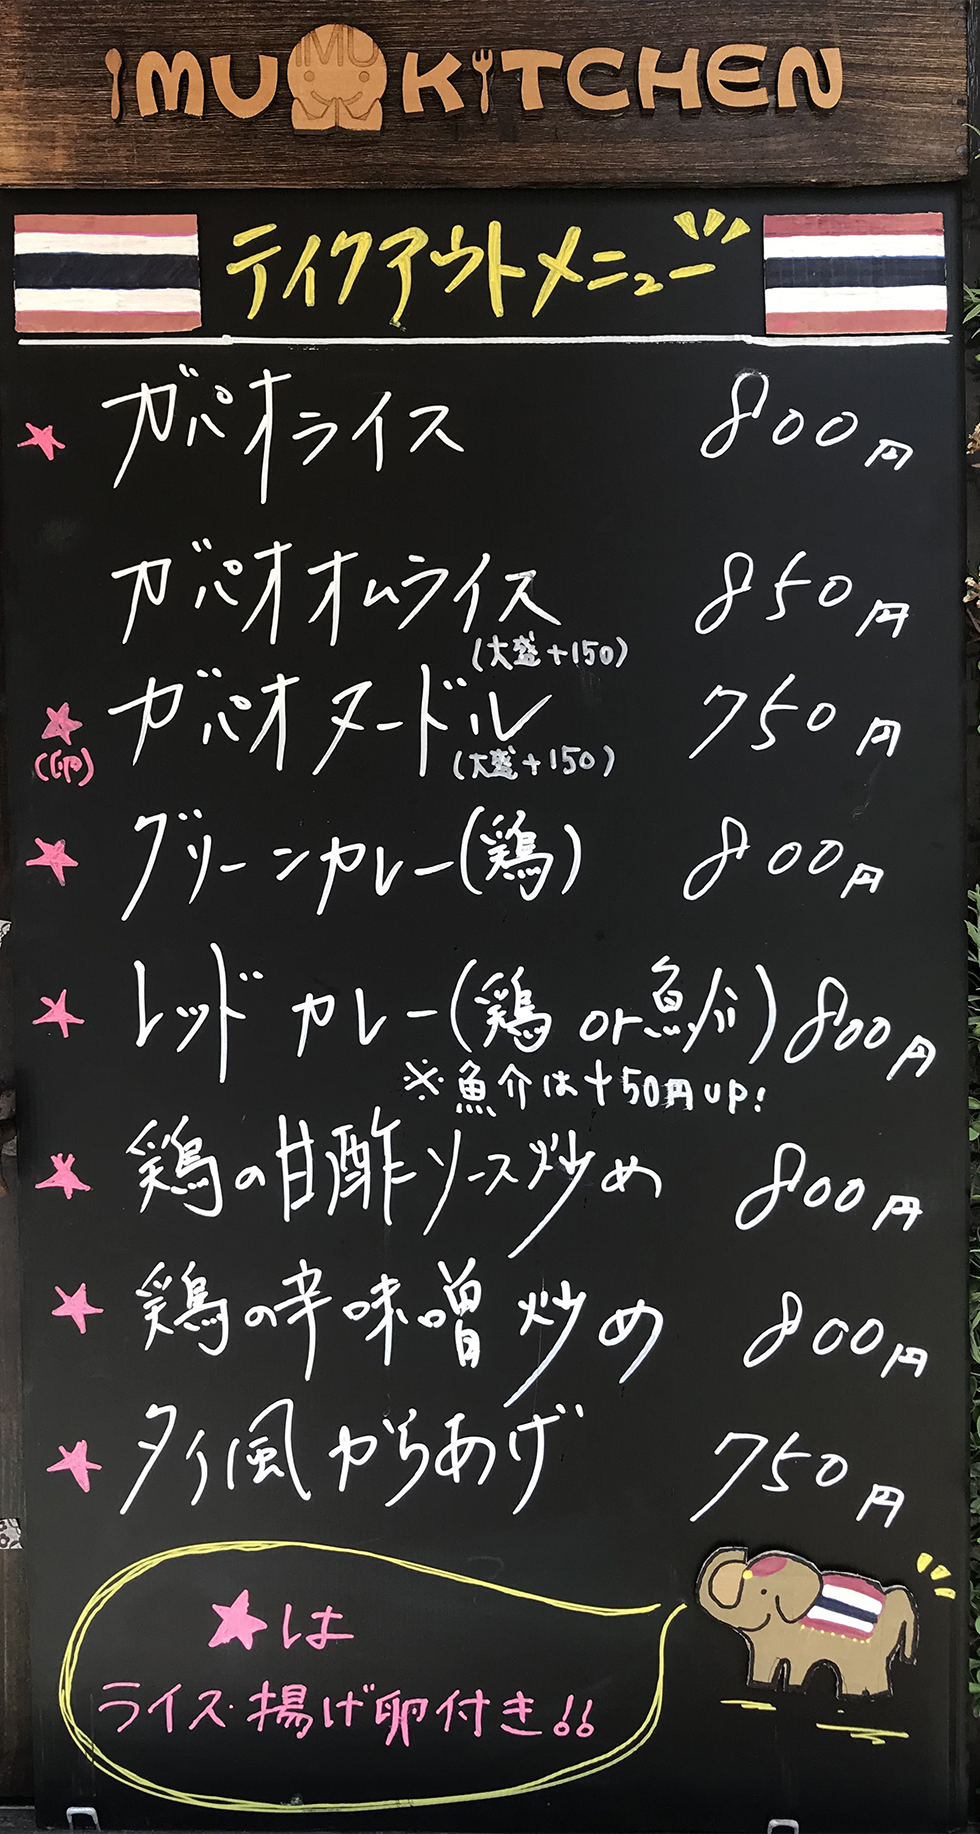 IMU KITCHEN
IMU
テイクアウトメニュー
★ ガパオライス 800円
ガパオオムライス 850円
(大盛+150)
★ ガパオヌードル 750円
(卵)
(大盛+150)
★ グリーンカレー(鶏) 800円
★ レッドカレー(鶏 or 魚介) 800円
※魚介は+50円UP!
★ 鶏の甘酢ソース炒め 800円
★ 鶏の辛味噌炒め 800円
★ タイ風からあげ 750円
★は
ライス・揚げ卵付き!!